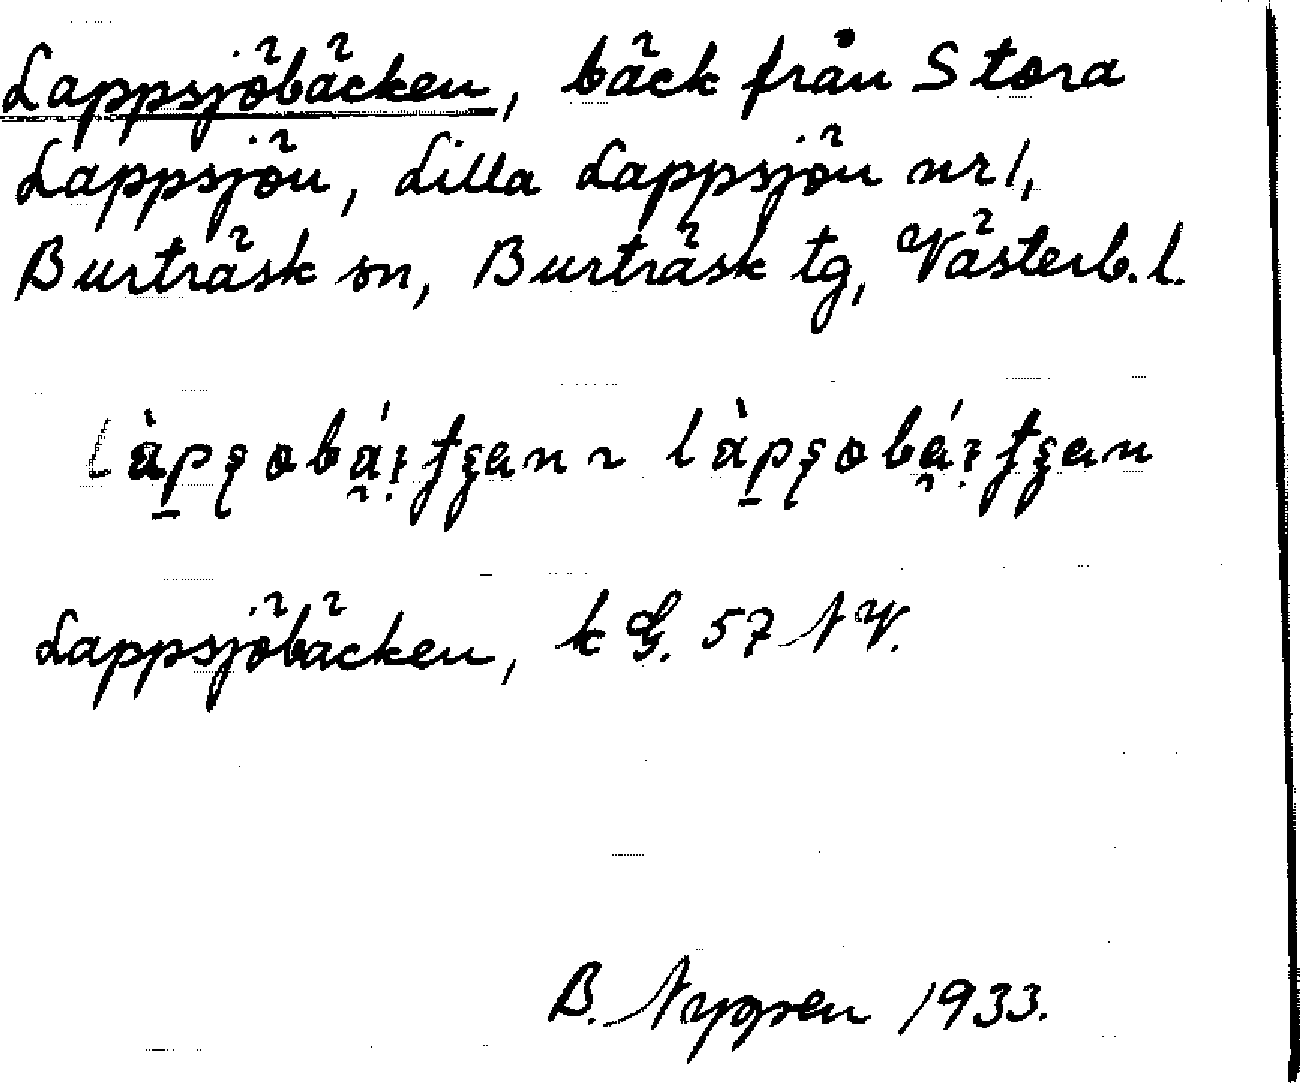 Lappsjöbäcken, bäck från Stora
Lappsjön, Lilla Lappsjön nr 1,
Burträsk sn, Burträsk tg, Västerb. l.
Lappsjöbäcken, k G. 57 NV.
B. Nygren 1933.